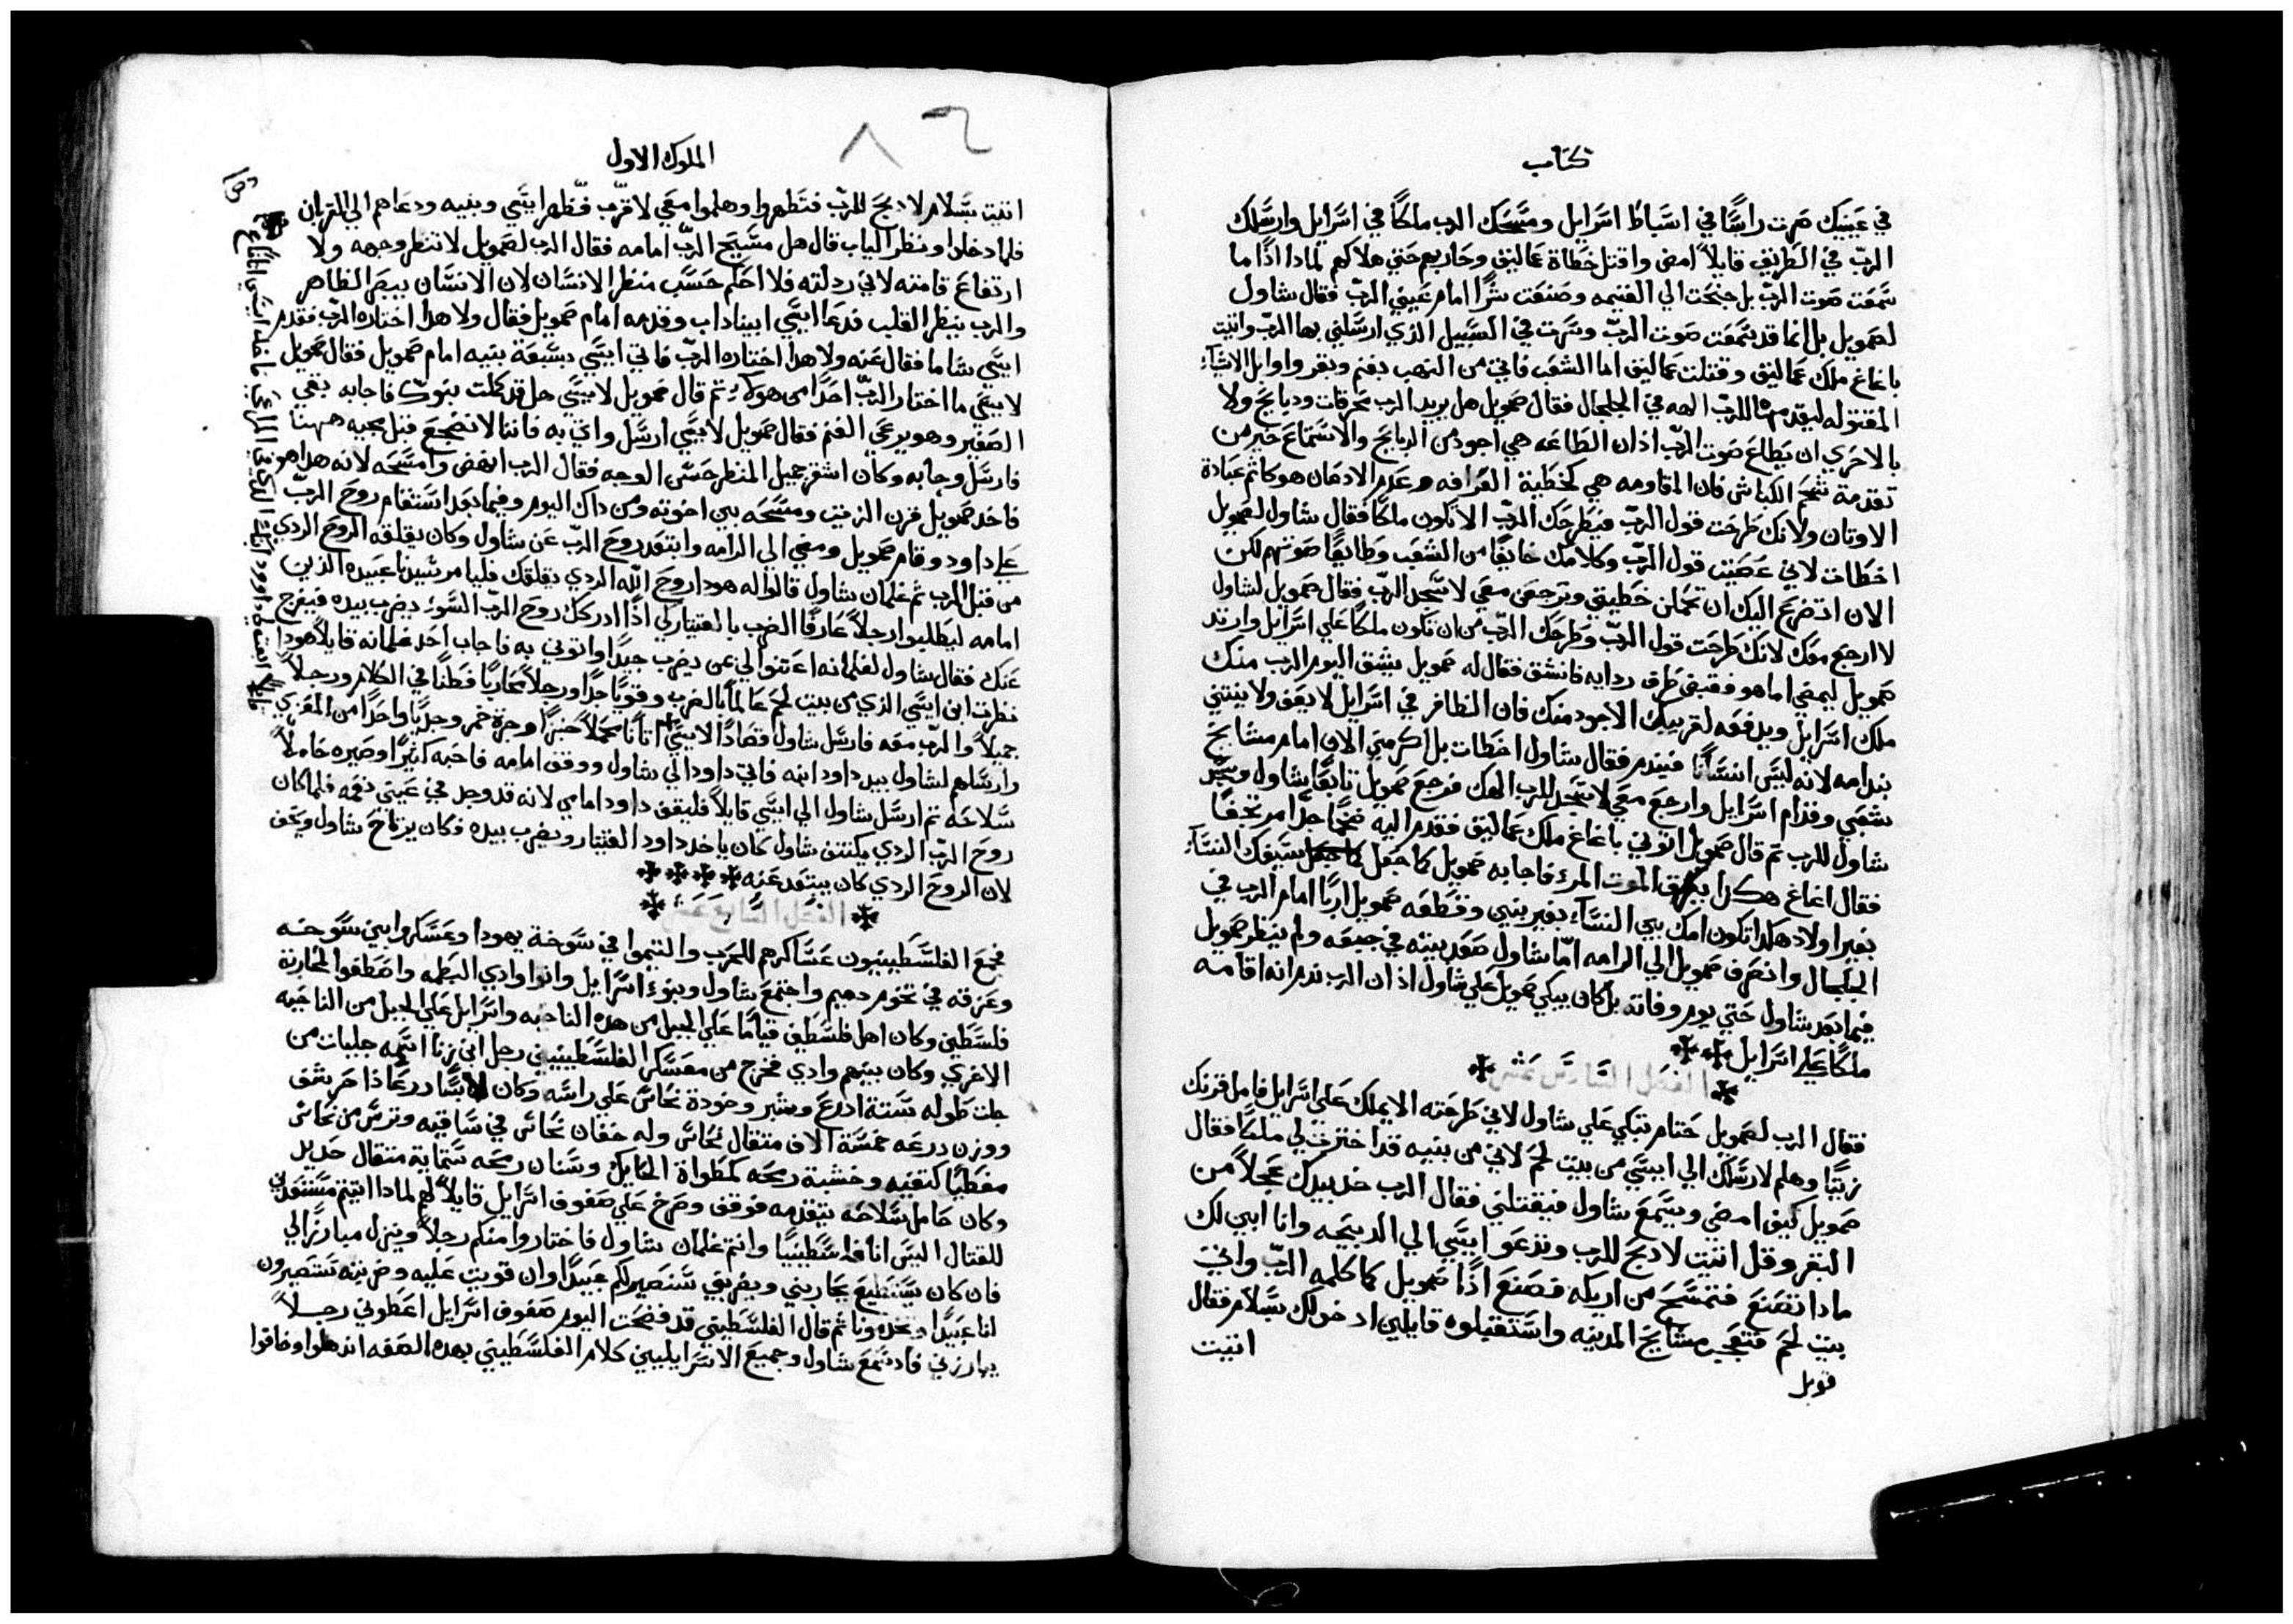 كتاب
في عينيك صرت راسًا في اسباط اسرايل ومسحك الرب ملكًا في اسرايل وارسلك
الربّ في الطريق قايلاً امض واقتل خطاة عماليق وحاربهم حتي هلاكهم لمادا اذًا ما
سمعت صوت الربّ بل جنحت الي الغنيمه وصنعت شرًا امام عيني الربّ فقال شاول
لصمويل بل انما قد سمعت صوت الربّ وسرت في السبيل الذي ارسلني بها الربّ واتيت
باغاغ ملك عماليق وقتلت عماليق اما الشعب فاتي من النهب بغنم وبقر واوايل الاشياء
المقتوله ليقدمها للربّ الهه في الجلجال فقال صمويل هل يريد الرب محرقات ودبايح ولا
بالاحري ان يطاع صوت الربّ اذ ان الطاعه هي اجود من الدبايح والاستماع خير من
تقدمة شحم الكباش فان المقاومه هي كخطية العرافه وعدم الادعان هو كاثم عبادة
الاوتان ولانك طرحت قول الربّ فيطرحك الربّ الا تكون ملكًا فقال شاول لصمويل
اخطات لاني عصيت قول الربّ وكلامك خايفًا من الشعب وطايعًا صوتهم لكن
الان اتضرع اليك ان تحمل خطيتي وترجع معي لاسجد الربّ فقال صمويل لشاول
لا ارجع معك لانك طرحت قول الربّ وطرحك الربّ من ان تكون ملكًا علي اسرايل وارتد
صمويل ليمضي اما هو فقبض طرف ردايه فانشق فقال له صمويل يشق اليوم الرب منك
ملك اسرايل ويدفعه لقريبك الاجود منك فان الظافر في اسرايل لا يعف ولا ينتني
بندامه لانه ليس انسانًا فيندم فقال شاول اخطات بل اكرمني الان امام مشايخ
شعبي وقدام اسرايل وارجع معي لاسجد للرب الهك فرجع صمويل تابعًا شاول وسجد
شاول للرب ثم قال صمويل اتوني باغاغ ملك عماليق فقدم اليه ضخمًا جدًا مرتجفًا
فقال اغاغ هكدا يفرق الموت المر فاجابه صمويل كما جعل سيفك النساء
بغير اولاد هكدا تكون امك بين النساء بغير بنين وقطعه صمويل اربًا امام الرب في
الجلجال وانصرف صمويل الي الرامه امّا شاول صعد بيته في جبعه ولم ينظر صمويل
فيما بعد شاول حتي يوم وفاته بل كان يبكي صمويل علي شاول اذ ان الرب ندم انه اقامه
ملكًا علي اسرايل
الفصل السادس عشر
فقال الرب لصمويل حتام تبكي علي شاول لاني طرحته الا يملك علي اسرايل فاملا قرنك
زيتًا وهلم لارسلك الي ايسي من بيت لحم لاني من بنيه قد اخترت لي ملكًا فقال
صمويل كيف امضي ويسمع شاول فيقتلني فقال الرب خد بيدك عجلاً من
البقر وقل اتيت لادبح للرب وتدعو ايسي الي الدبيحه وانا ابين لك
مادا تصنع فتمسح من اريكه فصنع اذًا صمويل كما كلمه الربّ واتي
بيت لحم فتعجب مشايخ المدينه واستقبلوه قايلين ادخولك بسلام فقال
اتيت
قوبل
الملوك الاول
٨٦
اتيت بسلام لادبح للربّ فتطهروا وهلموا معي لاقرّب فطهر ايسي وبنيه ودعاهم الي القربان
فلما دخلوا ونظر الياب قال هل مسيح الربّ امامه فقال الرب لصمويل لا تنظر وجهه ولا
ارتفاع قامته لاني ردلته فلا احكم حسب منظر الانسان لان الانسان يبصر الظاهر
والرب ينظر القلب فدعا ايسي ابيناداب وقدمه امام صمويل فقال ولا هدا اختاره الربّ فقدم
ايسي شاما فقال عنه ولا هدا اختاره الربّ فاتي ايسي بسبعة بنيه امام صمويل فقال صمويل
لايسي ما اختار الربّ احدًا من هولا ثم قال صمويل لايسي هل قد كملت بنوك فاجابه بقي
الصغير وهو يرعي الغنم فقال صمويل لايسي ارسل واتي به فاننا لا نضجع قبل مجيه ههنا
فارسل وجابه وكان اشقر جميل المنظر حسن الوجه فقال الرب انهض وامسحه لانه هدا هو
فاخد صمويل قرن الزيت ومسحه بين اخوته ومن داك اليوم وفيما بعد استقام روح الربّ
علي داود وقام صمويل ومضي الي الرامه وابتعد روح الربّ عن شاول وكان يقلقه الروح الردي
من قبل الرب ثم غلمان شاول قالوا له هودا روح الله الردي يقلقك فليامر سيدنا عبيده الذين
امامه ليطلبوا رجلاً عارفًا الضرب بالقيتار لكي اذًا ادركك روح الربّ السوء يضرب بيده فيفرج
عنك فقال شاول لغلمانه اعتنوا لي عن يضرب جيدًا واتوني به فاجاب احد غلمانه قايلاً هودا
نظرت ابن ايسي الذي من بيت لحم عالمًا بالضرب وقويًا جدًا ورجلاً محاربًا فطنًا في الكلام ورجلاً
جميلاً والرب معه فارسل شاول قصادًا لايسي
اتانًا محملاً خبزًا وجرة خمر وجديًا واحدًا من المعزي
وارسلهم لشاول بيد داود ابنه فاتي داود الي شاول ووقف امامه فاحبه كثيرًا وصيره حاملاً
سلاحه ثم ارسل شاول الي ايسي قايلاً فليقف داود امامي لانه قد وجد في عيني نعمه فلما كان
روح الربّ الردي يكتنف شاول كان ياخد داود القيتار ويضرب بيده فكان يرتاح شاول ويخف
لان الروح الردي كان يبتعد عنه
الفصل السابع عشر
فجمع الفلسطينيون عساكرهم للحرب والتيموا في سوخة يهودا وعسكروا بين سوخه
وعزقه في تخوم دميم واجتمع شاول وبنو اسرايل واتوا وادي البطمه واصطفوا لمحاربة
فلسطين وكان اهل فلسطين قيامًا علي الجبل من هده الناحيه واسرايل علي الجبل من الناحيه
الاخري وكان بينهم وادي فخرج من معسكر الفلسطينيين رجل ابن زنا اسمه جليات من
جات طوله ستة ادرع وشبر وخودة نحاس علي راسه وكان لابسًا درعًا ذا حرشف
ووزن درعه خمسة الاف متقال نحاس وله خفان نحاس في ساقيه وترس من نحاس
مغطيًا كتفيه وخشبة رمحه كمطواة الحايك وسنان رمحه ستماية متقال حديد
وكان حامل سلاحه يتقدمه فوقف وصرخ علي صفوف اسرايل قايلاً لهم لمادا اتيتم مستعدين
للقتال اليس انا فلسطينيًا وانتم غلمان شاول فاختاروا منكم رجلاً وينزل مبارزًا لي
فان كان يستطيع يحاربني ويضربني سنصير لكم عبيدًا وان قويت عليه وضربته تستصيرون
لنا عبيدًا وتخدمونا ثم قال الفلسطيني قد فضحت اليوم صفوف اسرايل اعطوني رجلاً
يبارزني فاد سمع شاول وجميع الاسرايليين كلام الفلسطيني بهده الصفه اندهلوا وخافوا